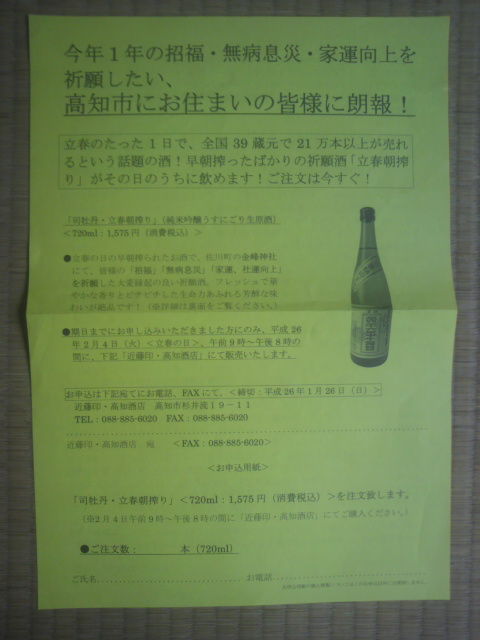 今年１年の招福・無病息災・家運向上を
祈願したい、
高知市にお住まいの皆様に朗報！
立春のたった１日で、全国 39 蔵元で 21 万本以上が売れ
るという話題の酒！早朝搾ったばかりの祈願酒「立春朝搾
り」がその日のうちに飲めます！ご注文は今すぐ！
「司牡丹・立春朝搾り」（純米吟醸うすにごり生原酒）
＜720ml：1,575 円（消費税込）＞
●立春の日の早朝搾られたお酒で、佐川町の金峰神社
にて、皆様の「招福」「無病息災」「家運、社運向上」
を祈願した大変縁起の良い祈願酒。フレッシュで華
やかな香りとピチピチした生命力あふれる芳醇な味
わいが絶品です！（※詳細は裏面をご覧ください。）
●期日までにお申し込みいただきました方にのみ、平成 26
年２月４日（火）＜立春の日＞、午前９時～午後８時の
間に、下記「近藤印・高知酒店」にて販売いたします。
お申込は下記宛てにお電話、FAXにて、＜締切：平成 26 年１月 26 日（日）＞
近藤印・高知酒店　高知市杉井流１９－１１
TEL：088-885-6020　FAX：088-885-6020
近藤印・高知酒店　宛　＜FAX：088-885-6020＞
＜お申込用紙＞
「司牡丹・立春朝搾り」＜720ml：1,575 円（消費税込）＞を注文致します。
（※２月４日午前９時～午後８時の間に「近藤印・高知酒店」にてご購入ください。）
●ご注文数：　　　本（720ml）
ご氏名　お電話